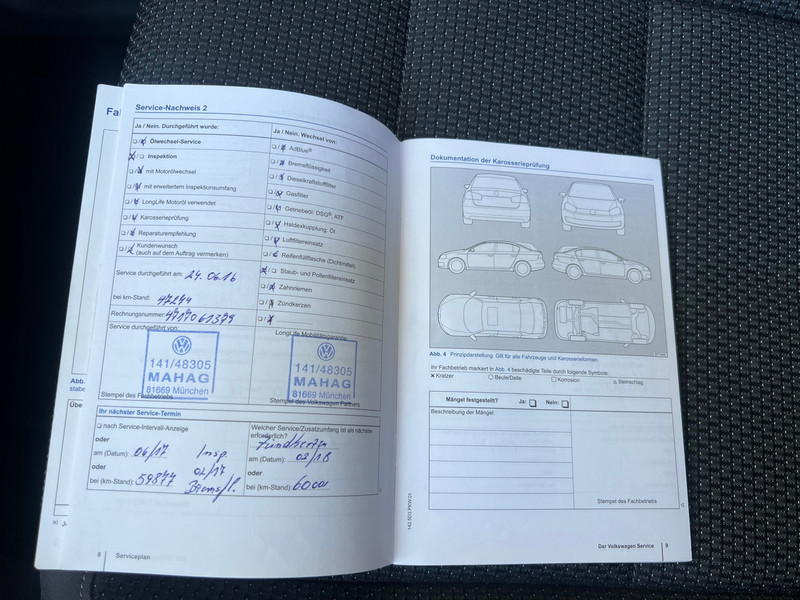 Fa
Service-Nachweis 2
Ja / Nein. Durchgeführt wurde:
Ölwechsel-Service
Inspektion
mit Motorölwechsel
mit erweitertem Inspektionsumfang
LongLife Motoröl verwendet
Karosserieprüfung
Reparaturempfehlung
Kundenwunsch
(auch auf dem Auftrag vermerken)
Service durchgeführt am: 24.06.16
bei km-Stand: 47244
Rechnungsnummer:
Service durchgeführt von:
141/48305
MAHAG
81669 München
Stempel des Fachbetriebs
Ja / Nein. Wechsel von:
AdBlue®
Bremsflüssigkeit
Dieselkraftstofffilter
Gasfilter
Getriebeöl: DSG®, ATF
Haldexkupplung, Öl
Luftfiltereinsatz
Reifenfüllflasche (Dichtmittel)
Staub- und Pollenfiltereinsatz
Zahnriemen
Zündkerzen
LongLife Mobilitätsgarantie:
141/48305
MAHAG
81669 München
Stempel des Volkswagen Partners
Ihr nächster Service-Termin
nach Service-Intervall-Anzeige
oder
am (Datum): 06/17 Insp.
oder 02/17
bei (km-Stand): 59877 Bremsfl.
Welcher Service/Zusatzumfang ist als nächster
erforderlich?
Zündkerzen
am (Datum): 02/18
oder
bei (km-Stand): 60000
8 Serviceplan
Abb.
Übe
Dokumentation der Karosserieprüfung
Abb. 4 Prinzipdarstellung. Gilt für alle Fahrzeuge und Karosserieformen.
Ihr Fachbetrieb markiert in Abb. 4 beschädigte Teile durch folgende Symbole:
x Kratzer ○ Beule/Delle □ Korrosion △ Steinschlag
Mängel festgestellt? Ja: Nein:
Beschreibung der Mängel:
Stempel des Fachbetriebs
142.5D3.PKW.01
Der Volkswagen Service 9